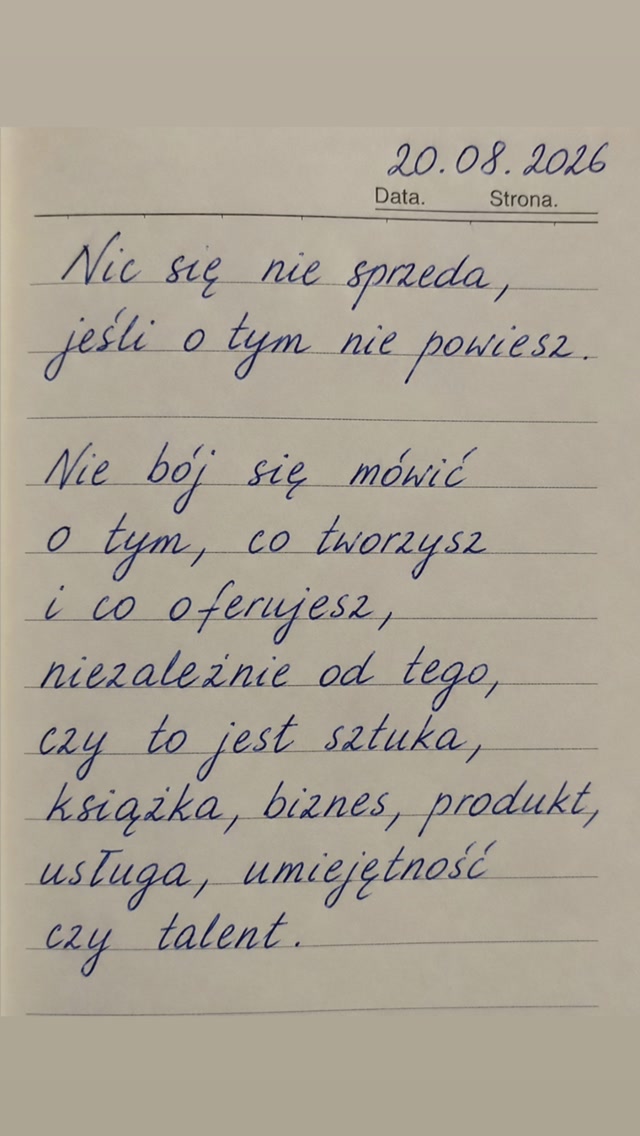 20.08.2026
Data. Strona.
Nic się nie sprzeda,
jeśli o tym nie powiesz.
Nie bój się mówić
o tym, co tworzysz
i co oferujesz,
niezależnie od tego,
czy to jest sztuka,
książka, biznes, produkt,
usługa, umiejętność
czy talent.